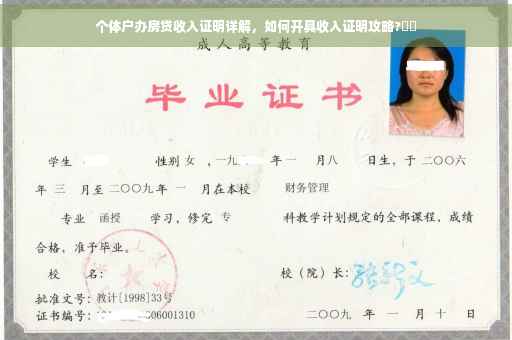 个体户办房贷收入证明详解，如何开具收入证明攻略?
成人高等教育
毕业证书
学生 性别 女 ，一九 年 一 月八 日生，于 二〇〇六
年 三 月至 二〇〇九 年 一 月在本校 财务管理
专业 函授 学习，修完 专 科教学计划规定的全部课程，成绩
合格，准予毕业。
校 名： 校（院）长：
批准文号：教计[1998]33号
证书编号： 06001310 二〇〇九 年 一 月 十 日